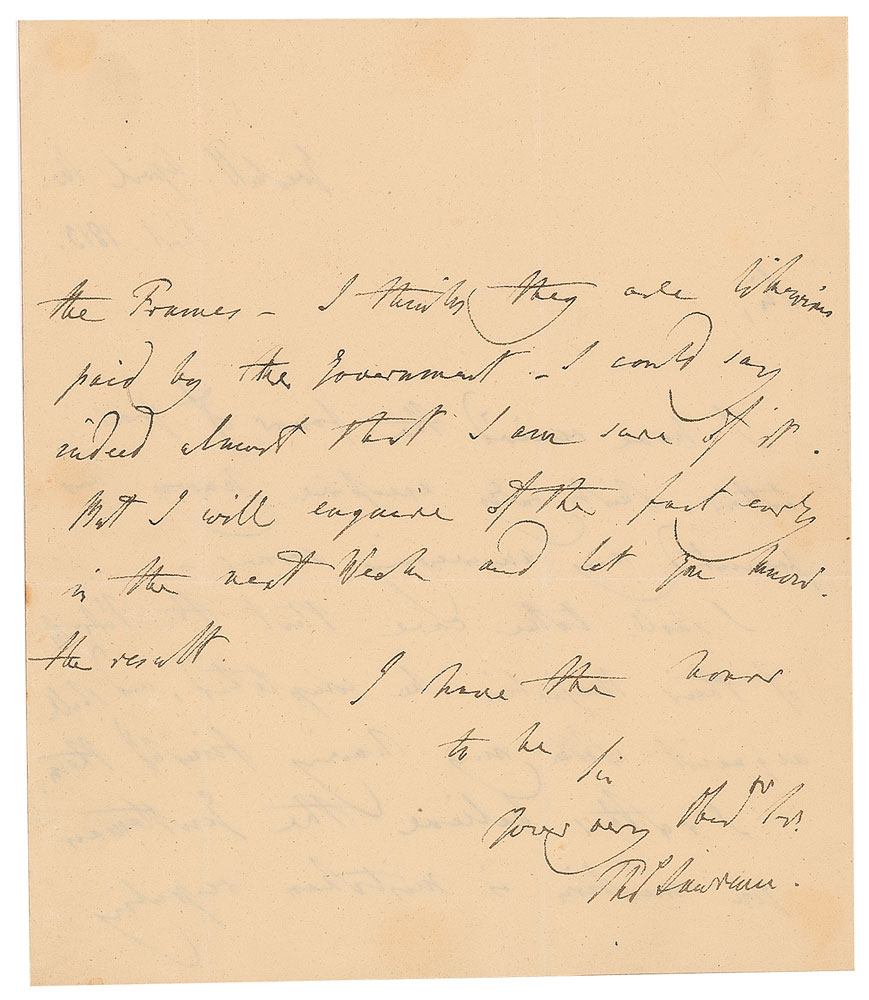 the Frames - I think they are likewise
paid by the Government - I could say
indeed almost that I am sure of it.
But I will enquire of the fact early
in the next Week and let you know
the result
I have the honor
to be Sir
Your very Obed.t Ser.t
Tho.s Lawrence.